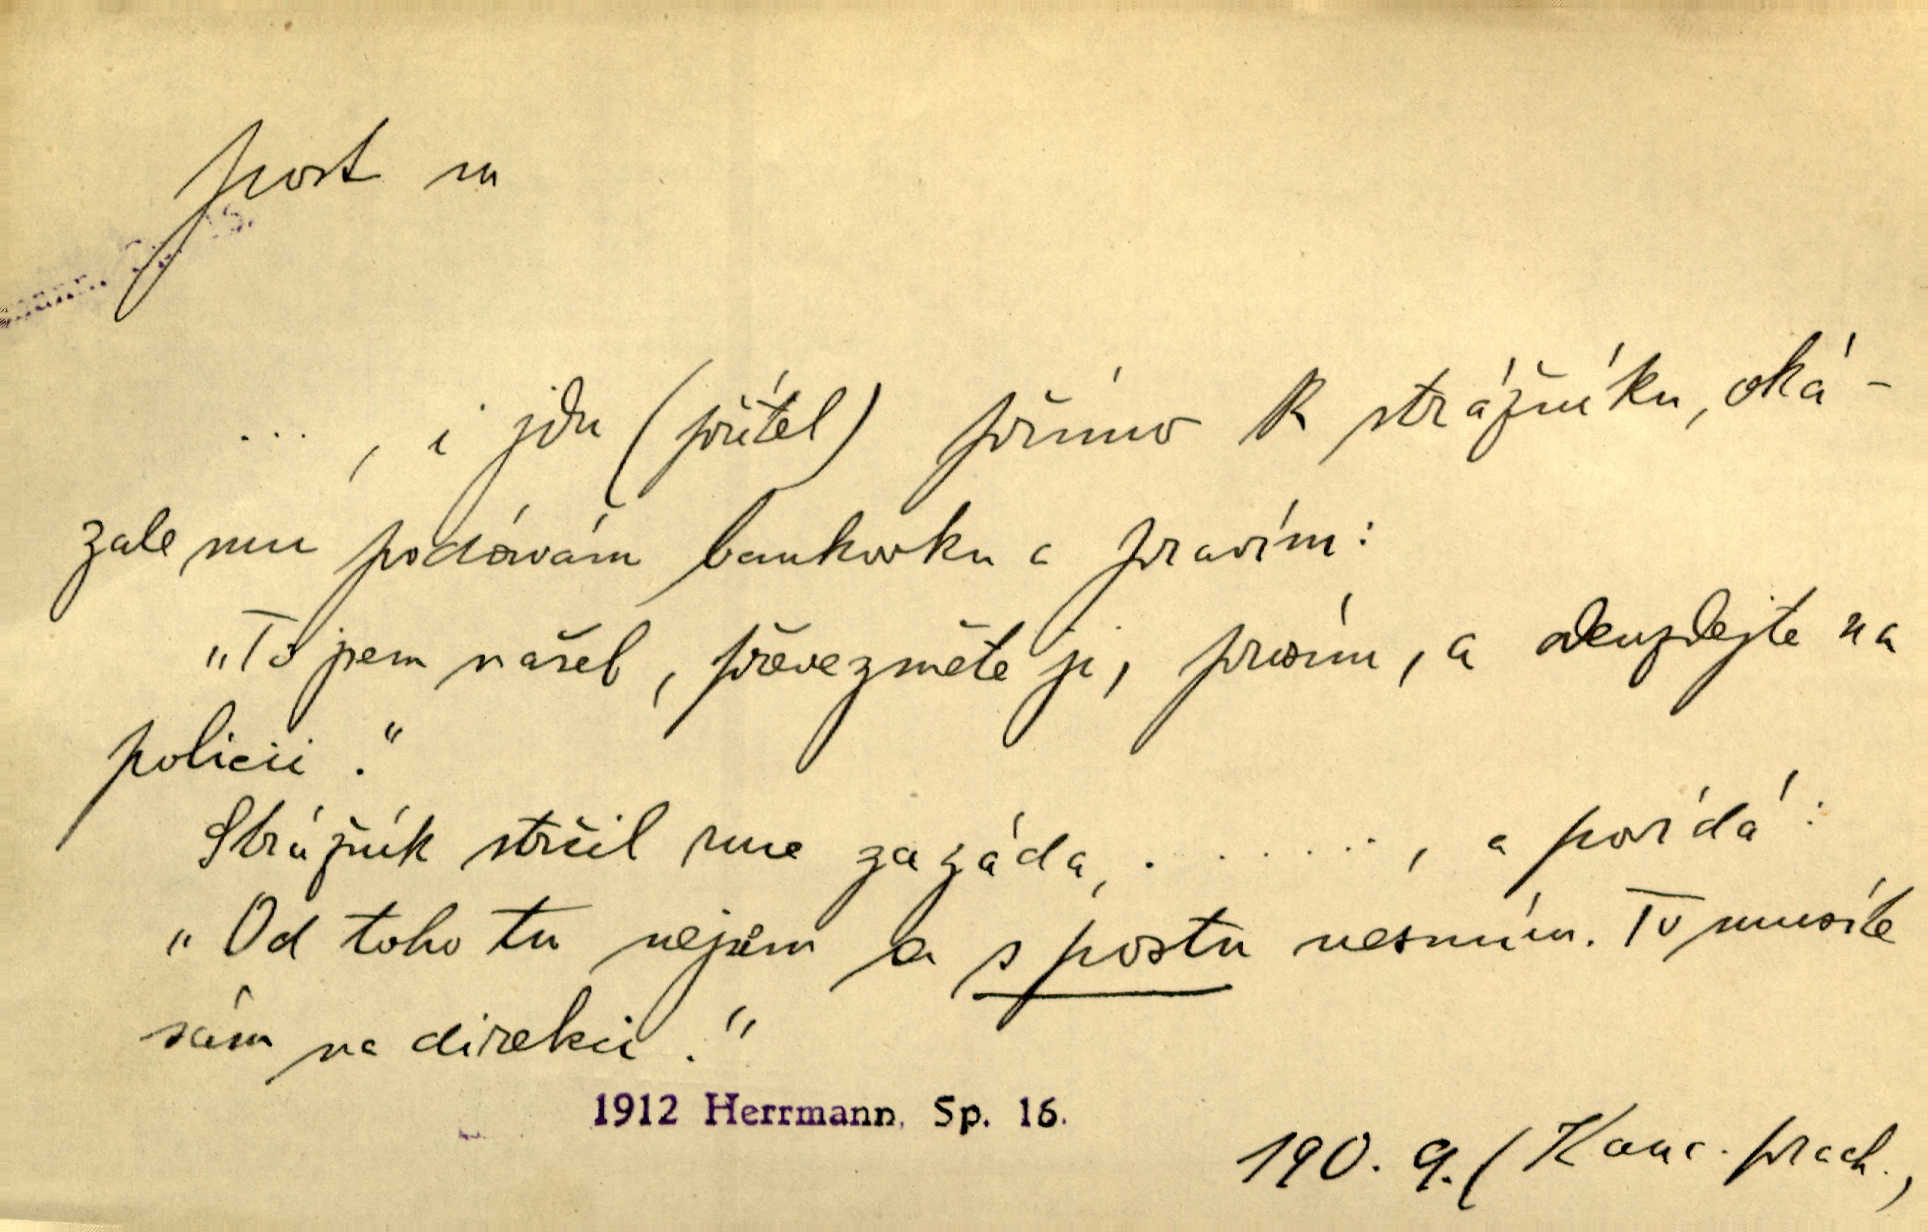 post m
..., i jdu (přítel) přímo k strážníku, oká-
zale mu podávám bankovku a pravím:
„To jsem našel, převezměte ji, prosím, a odevzdejte na
policii."
Strážník strčil ruce za záda, ......., a povídá:
„Od toho tu nejsem a s postu nesmím. To musíte
sám na direkci."
1912 Herrmann, Sp. 16.
190. 9. (Kanc. prach.,